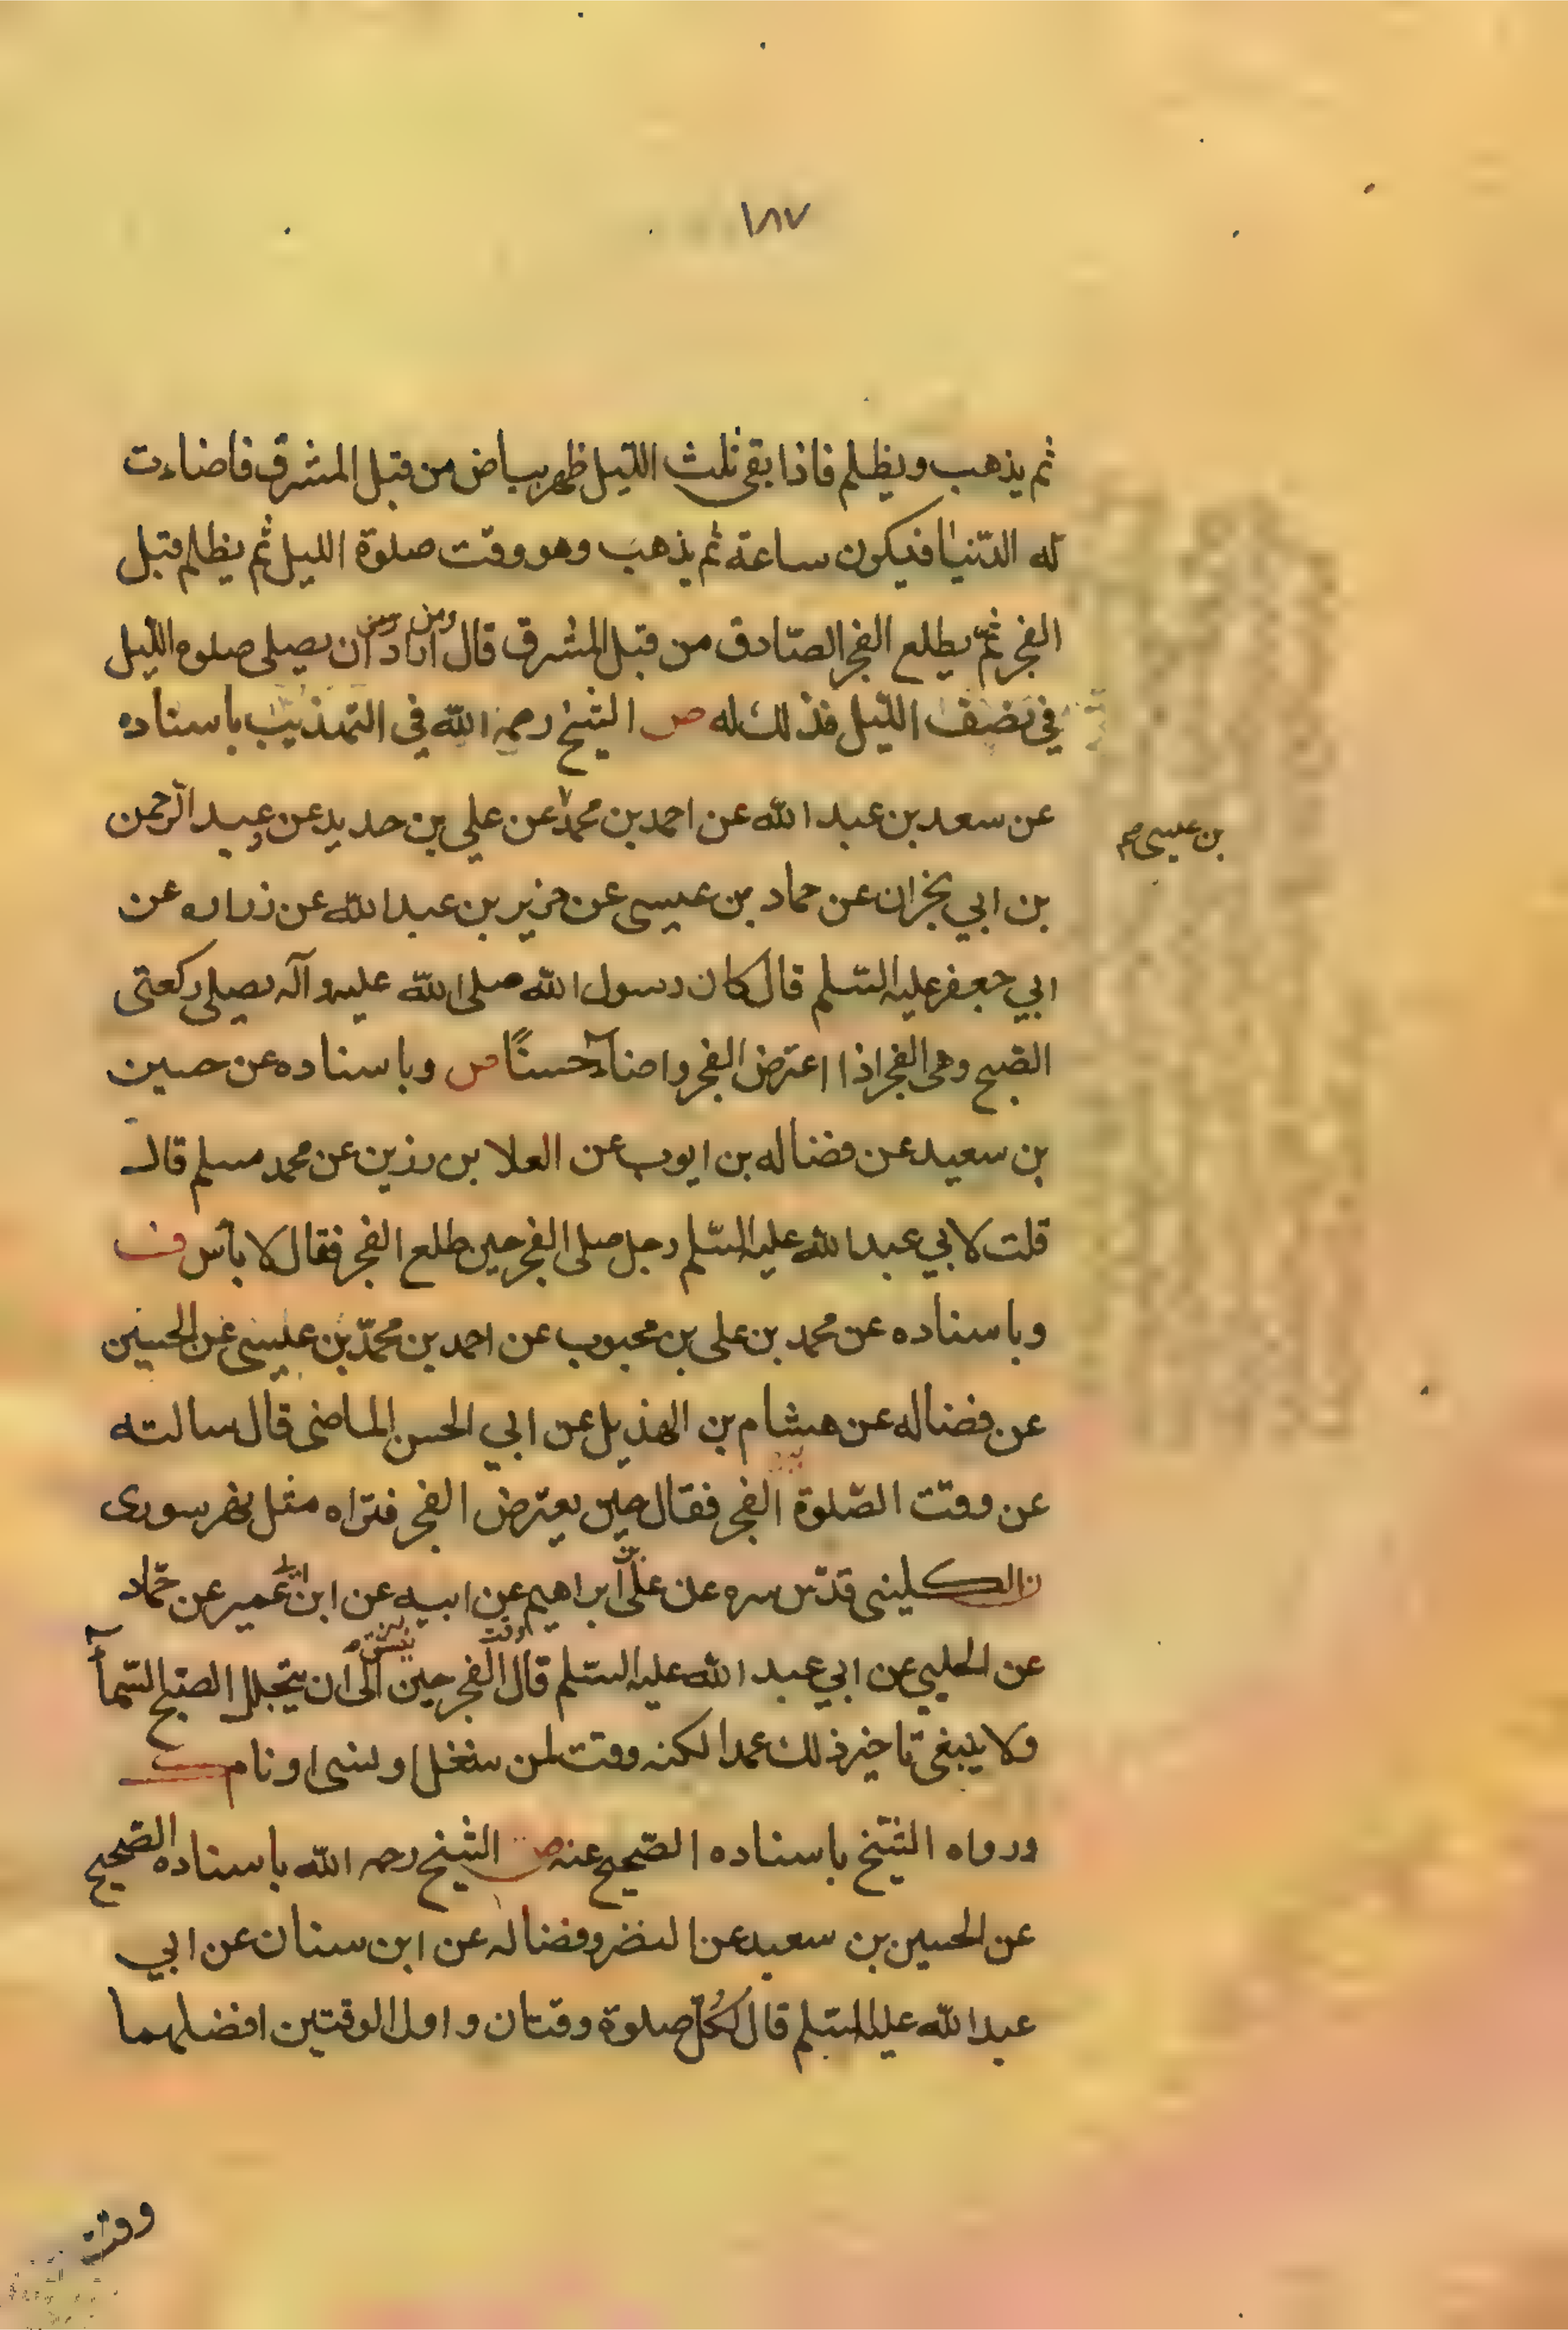 ١٨٧
ثم يذهب ويظلم فاذا بقى ثلث الليل ظهر بياض من قبل المشرق فاضاءت
له الدنيا فيكون ساعة ثم يذهب وهو وقت صلوة الليل ثم يظلم قبل
الفجر ثم يطلع الفجر الصادق من قبل المشرق قال ومن اراد ان يصلى صلوة الليل
في نصف الليل فذلك له ص الشيخ رحمه الله في التهذيب باسناده
عن سعد بن عبد الله عن احمد بن محمد عن علي بن حديد عن عبد الرحمن
بن عيسى صح
بن ابي نجران عن حماد بن عيسى عن حريز بن عبد الله عن زراره عن
ابي جعفر عليه السلم قال كان رسول الله صلى الله عليه وآله يصلى ركعتى
الصبح وهى الفجر اذا اعترض الفجر واضاء حسنًا ص وباسناده عن حسين
بن سعيد عن فضاله بن ايوب عن العلا بن رزين عن محمد مسلم قال
قلت لابي عبد الله عليه السلم رجل صلى الفجر حين طلع الفجر فقال لا بأس
وباسناده عن محمد بن على بن محبوب عن احمد بن محمد بن عيسى عن الحسين
عن فضاله عن هشام بن الهذيل عن ابي الحسن الماضى قال سالته
عن وقت الصلوة الفجر فقال حين يعترض الفجر فتراه مثل نهر سورى
الكلينى قدس سره عن على بن ابراهيم عن ابيه عن ابن ابى عمير عن حماد
عن الحلبي عن ابي عبد الله عليه السلم قال وقت الفجر حين ينشق الى ان يتجلل الصبح السماء
ولا ينبغى تاخير ذلك عمدا لكنه وقت لمن شغل او نسى او نام
ورواه الشيخ باسناده الصحيح عنه ص الشيخ رحمه الله باسناده الصحيح
عن الحسين بن سعيد عن النضر وفضاله عن ابن سنان عن ابي
عبد الله عليه السلم قال لكل صلوة وقتان و اول الوقتين افضلهما
وقت